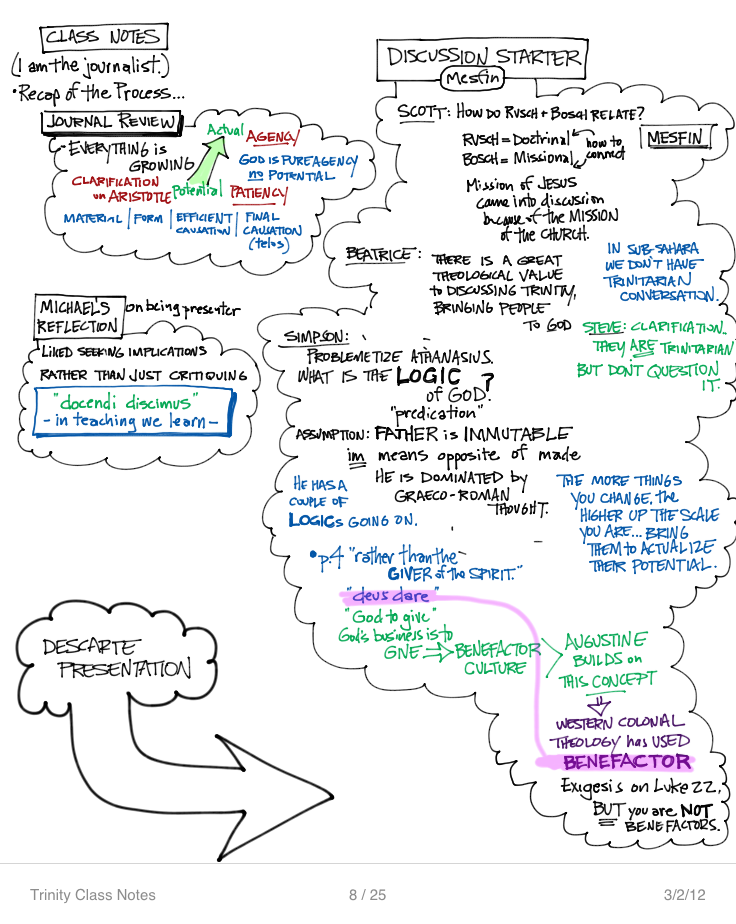 CLASS NOTES
(I am the journalist.)
• Recap of the Process...
JOURNAL REVIEW
- EVERYTHING is
GROWING
CLARIFICATION
on ARISTOTLE
Actual
Potential
AGENCY
GOD IS PURE AGENCY
no POTENTIAL
PATIENCY
MATERIAL | FORM | EFFICIENT CAUSATION | FINAL CAUSATION (telos)
MICHAEL'S REFLECTION on being presenter
LIKED SEEKING IMPLICATIONS
RATHER THAN JUST CRITIQUING
"docendi discimus"
- in teaching we learn -
DESCARTE
PRESENTATION
DISCUSSION STARTER
Mesfin
SCOTT: HOW DO RUSCH + BOSCH RELATE?
RUSCH = Doctrinal
BOSCH = Missional
how to
connect
MESFIN
Mission of JESUS
came into discussion
because of the MISSION
of the CHURCH.
BEATRICE: THERE IS A GREAT
THEOLOGICAL VALUE
to DISCUSSING TRINITY,
BRINGING PEOPLE
TO GOD
IN SUB-SAHARA
WE DON'T HAVE
TRINITARIAN
CONVERSATION.
STEVE: CLARIFICATION..
THEY ARE TRINITARIAN
BUT DON'T QUESTION
IT.
SIMPSON:
PROBLEMETIZE ATHANASIUS.
WHAT IS THE LOGIC
of GOD?
"predication"
ASSUMPTION: FATHER is IMMUTABLE
im means opposite of made
HE IS DOMINATED by
GRAECO-ROMAN
THOUGHT.
HE HAS A
COUPLE OF
LOGICS GOING ON.
THE MORE THINGS
YOU CHANGE, the
HIGHER UP THE SCALE
YOU ARE... BRING
THEM to ACTUALIZE
THEIR POTENTIAL.
• p.4 "rather than the
GIVER of the SPIRIT."
"deus dare"
"God to give"
God's business is to
GIVE ⇒ BENEFACTOR
CULTURE
AUGUSTINE
BUILDS on
THIS CONCEPT
WESTERN COLONIAL
THEOLOGY has USED
BENEFACTOR
Exigesis on Luke 22.
BUT you are NOT
BENEFACTORS.
Trinity Class Notes
8 / 25
3/2/12